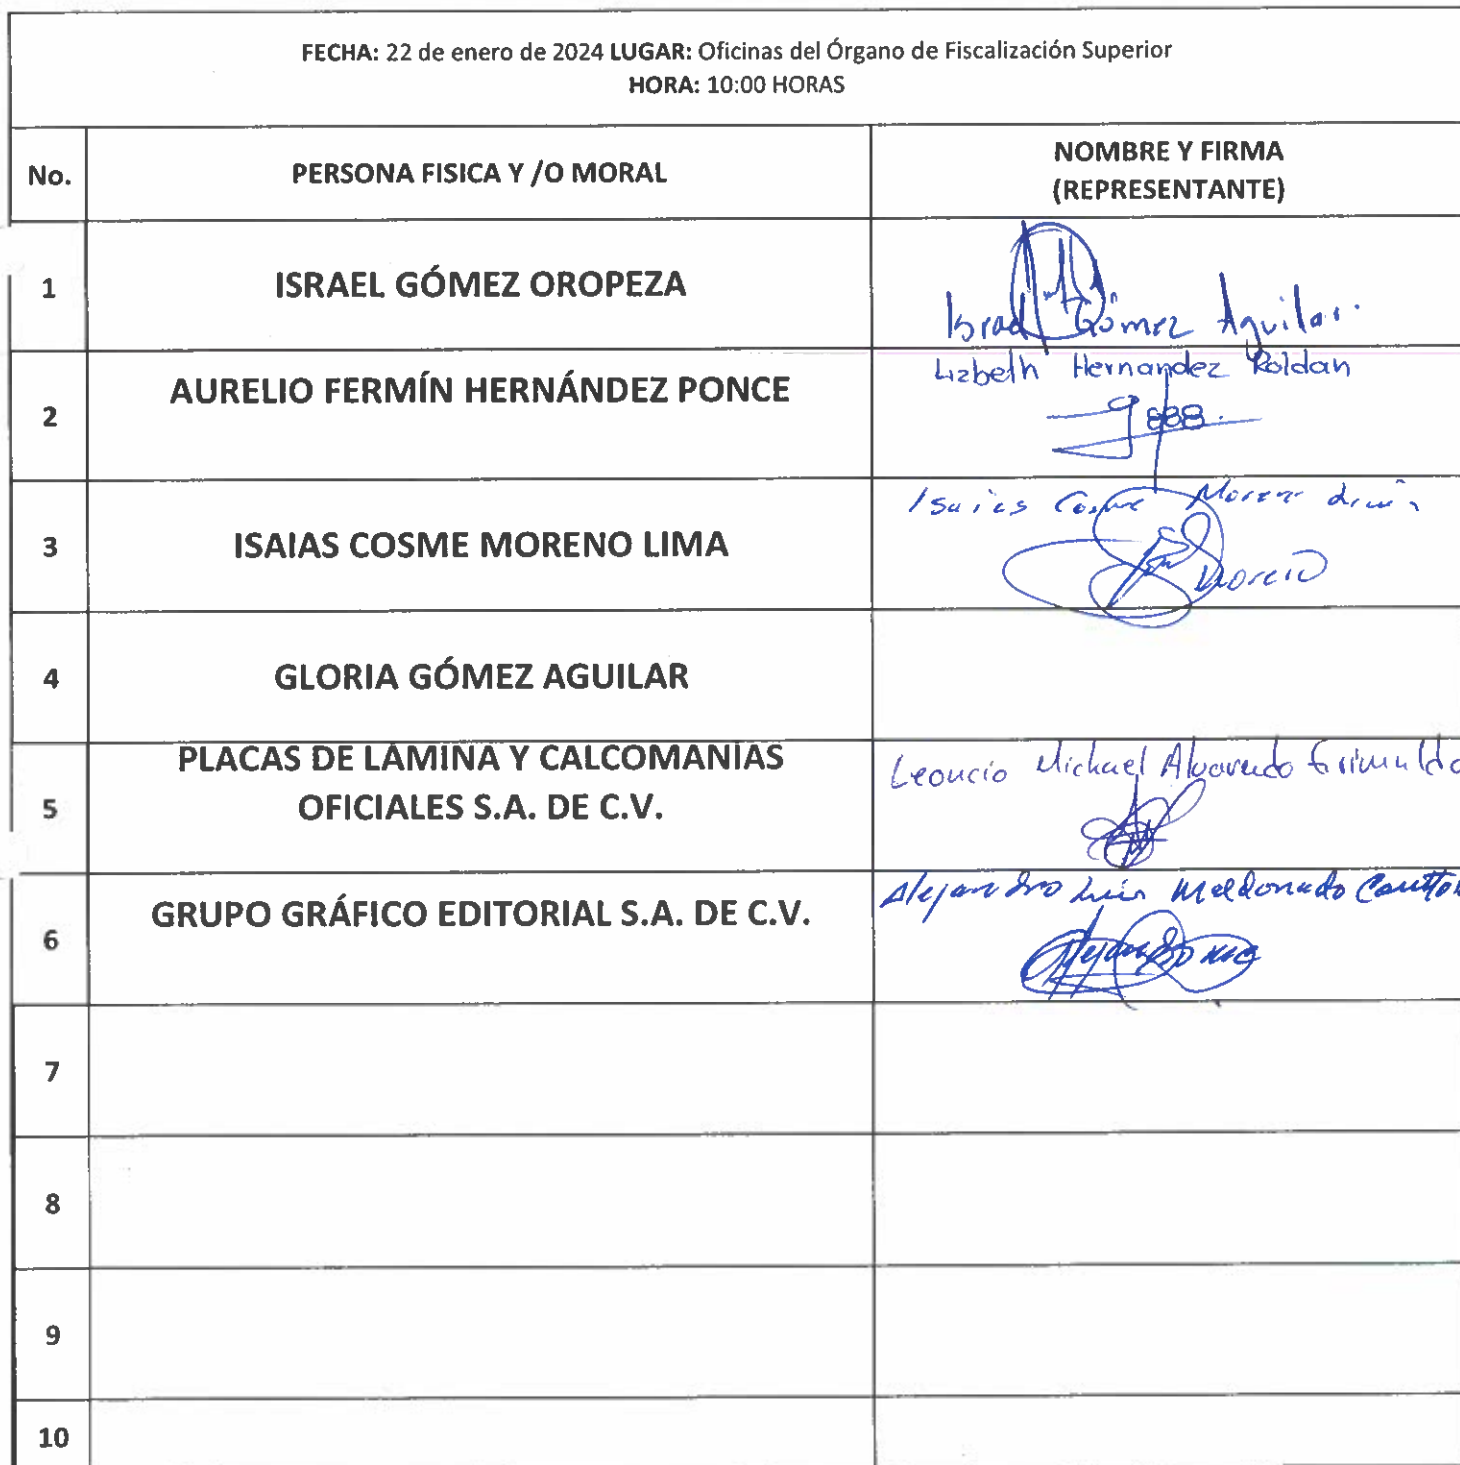 FECHA: 22 de enero de 2024 LUGAR: Oficinas del Órgano de Fiscalización Superior
HORA: 10:00 HORAS
No.
PERSONA FISICA Y /O MORAL
NOMBRE Y FIRMA
(REPRESENTANTE)
1
ISRAEL GÓMEZ OROPEZA
Israel Gómez Aguilar.
2
AURELIO FERMÍN HERNÁNDEZ PONCE
Lizbeth Hernandez Roldan
3
ISAIAS COSME MORENO LIMA
Isaias Cosme Moreno Lima
4
GLORIA GÓMEZ AGUILAR
5
PLACAS DE LÁMINA Y CALCOMANÍAS
OFICIALES S.A. DE C.V.
Leoncio Michael Alvarado Grimaldo
6
GRUPO GRÁFICO EDITORIAL S.A. DE C.V.
Alejandro Luis Maldonado
7
8
9
10